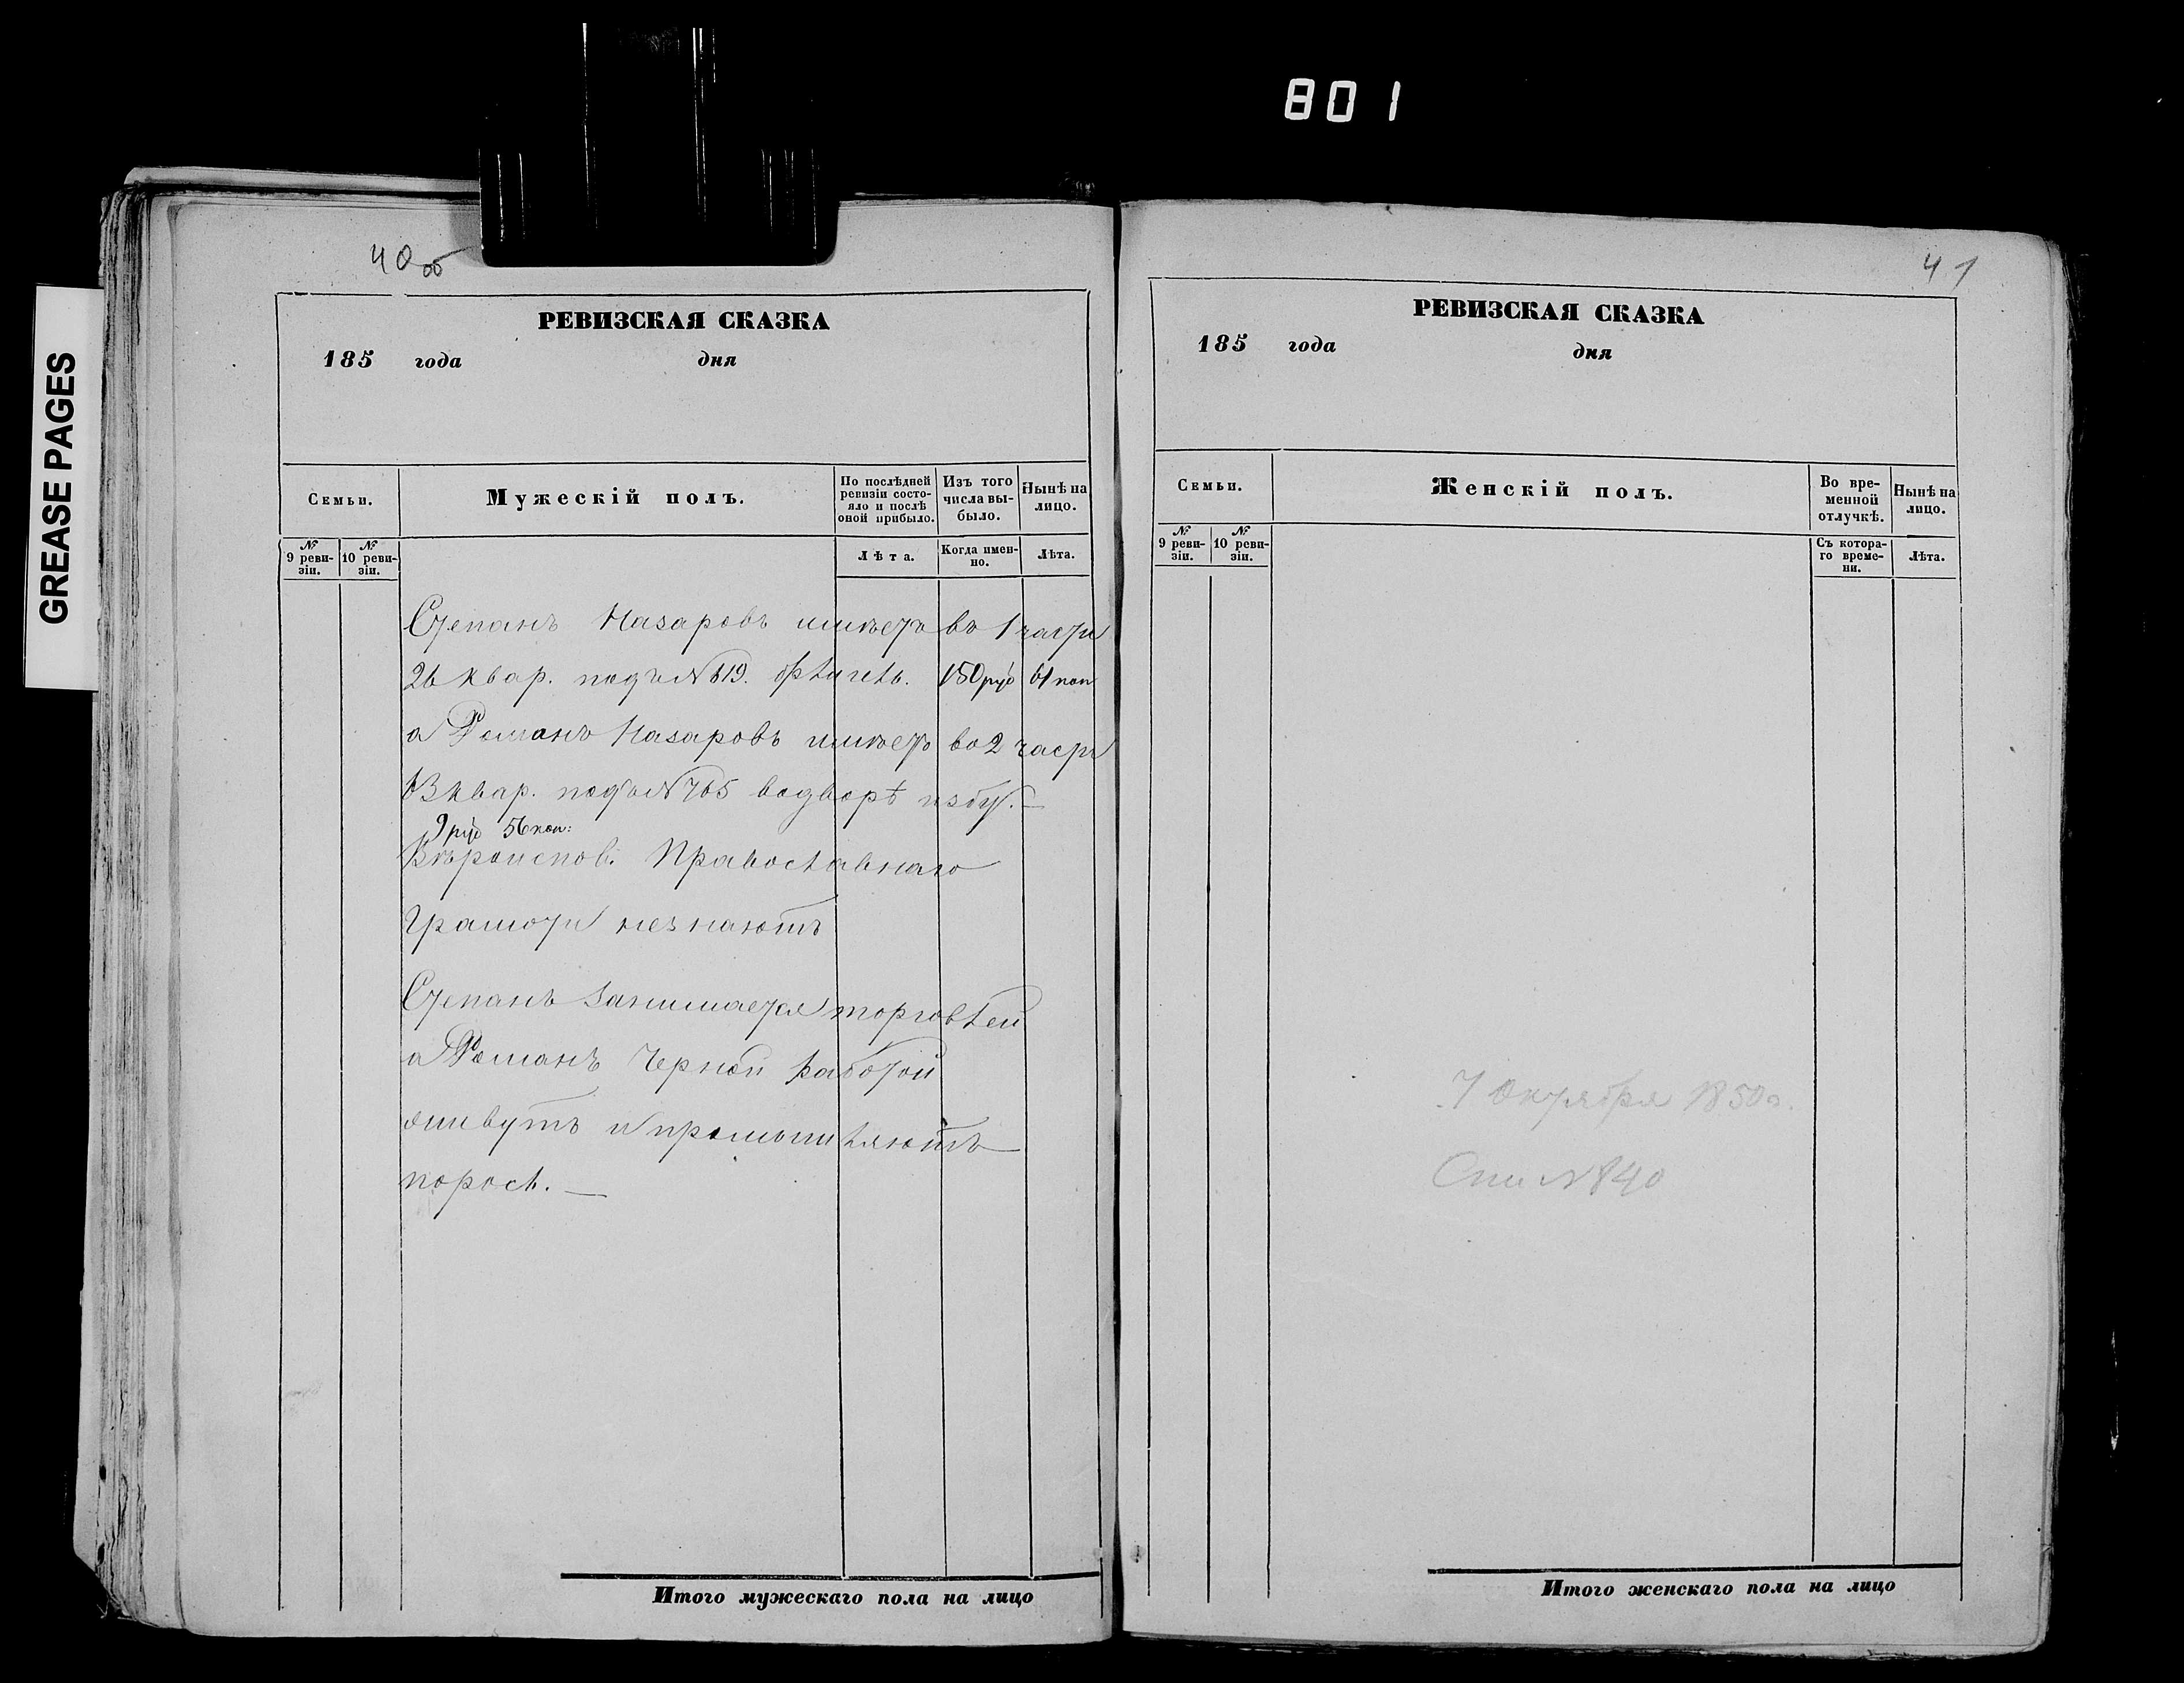 801
GREASE PAGES
40об
РЕВИЗСКАЯ СКАЗКА
185 года дня
Семьи.
Мужескій полъ.
По послѣдней ревизіи состояло и послѣ оной прибыло.
Изъ того числа выбыло.
Нынѣ на лицо.
№ 9 ревизіи.
№ 10 ревизіи.
Лѣта.
Когда именно.
Лѣта.
Степанъ Назаровъ имѣетъ въ 1 части
26 квар. подъ № 619. флигель. 150 руб 61 коп
а Романъ Назаровъ имѣетъ во 2 части
квар. подъ № 765 водворѣ избу. —
9 руб 56 коп:
Вѣроиспов. Православнаго
Грамоти незнаютъ
Степанъ Занимается торговлей
а Романъ Черной работой
живутъ и промышляютъ
поросл. —
Итого мужескаго пола на лицо
41
РЕВИЗСКАЯ СКАЗКА
185 года дня
Семьи.
Женскій полъ.
Во временной отлучкѣ.
Нынѣ на лицо.
№ 9 ревизіи.
№ 10 ревизіи.
Съ котораго времени.
Лѣта.
7 Октября 1850 г.
№ 840
Итого женскаго пола на лицо